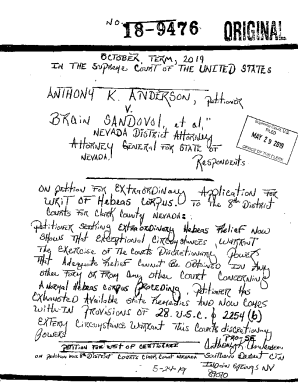 NO. 18-9476 ORIGINAL
OCTOBER, TERM, 2019
IN THE SUPREME COURT OF THE UNITED STATES
ANTHONY K. ANDERSON, Petitioner
V.
BRAIN SANDOVOL, et al,"
NEVADA DISTRICT ATTORNEY
ATTORNEY GENERAL FOR STATE OF
NEVADA.
Respondents
FILED
MAY 25 2019
ON PETITION FOR EXTRAORDINARY APPLICATION FOR
WRIT OF HABEAS CORPUS, TO THE 8th DISTRICT
COURTS FOR CLARK COUNTY NEVADA:
PETITIONER SEEKING EXTRAORDINARY HABEAS RELIEF NOW
SHOWS THAT EXCEPTIONAL CIRCUSTANCES WARRANT
THE EXERCISE OF THE COURTS DISCRETIONARY POWERS
THAT ADEQUATE RELIEF CANNOT BE OBTAINED IN ANY
OTHER FORM OR FROM ANY OTHER COURT CONCERNING
HABEAS CORPUS PROCEEDING. PETITIONER HAS
EXHAUSTED AVAILABLE STATE REMEDIES AND NOW COMES
WITH IN PROVISIONS OF 28. U.S.C. § 2254(b)
EXTERY CIRCUSTANCE WARRANT THIS COURTS DISCRETIONARY
POWERS
PRO SE
PETITION FOR WRIT OF CERTIORARI
ON PETITION FOR 8th DISTRICT COURTS CLARK COUNT NEVADA
Southern Desert C.C.
5-24-19
INDIAN SPRINGS NV